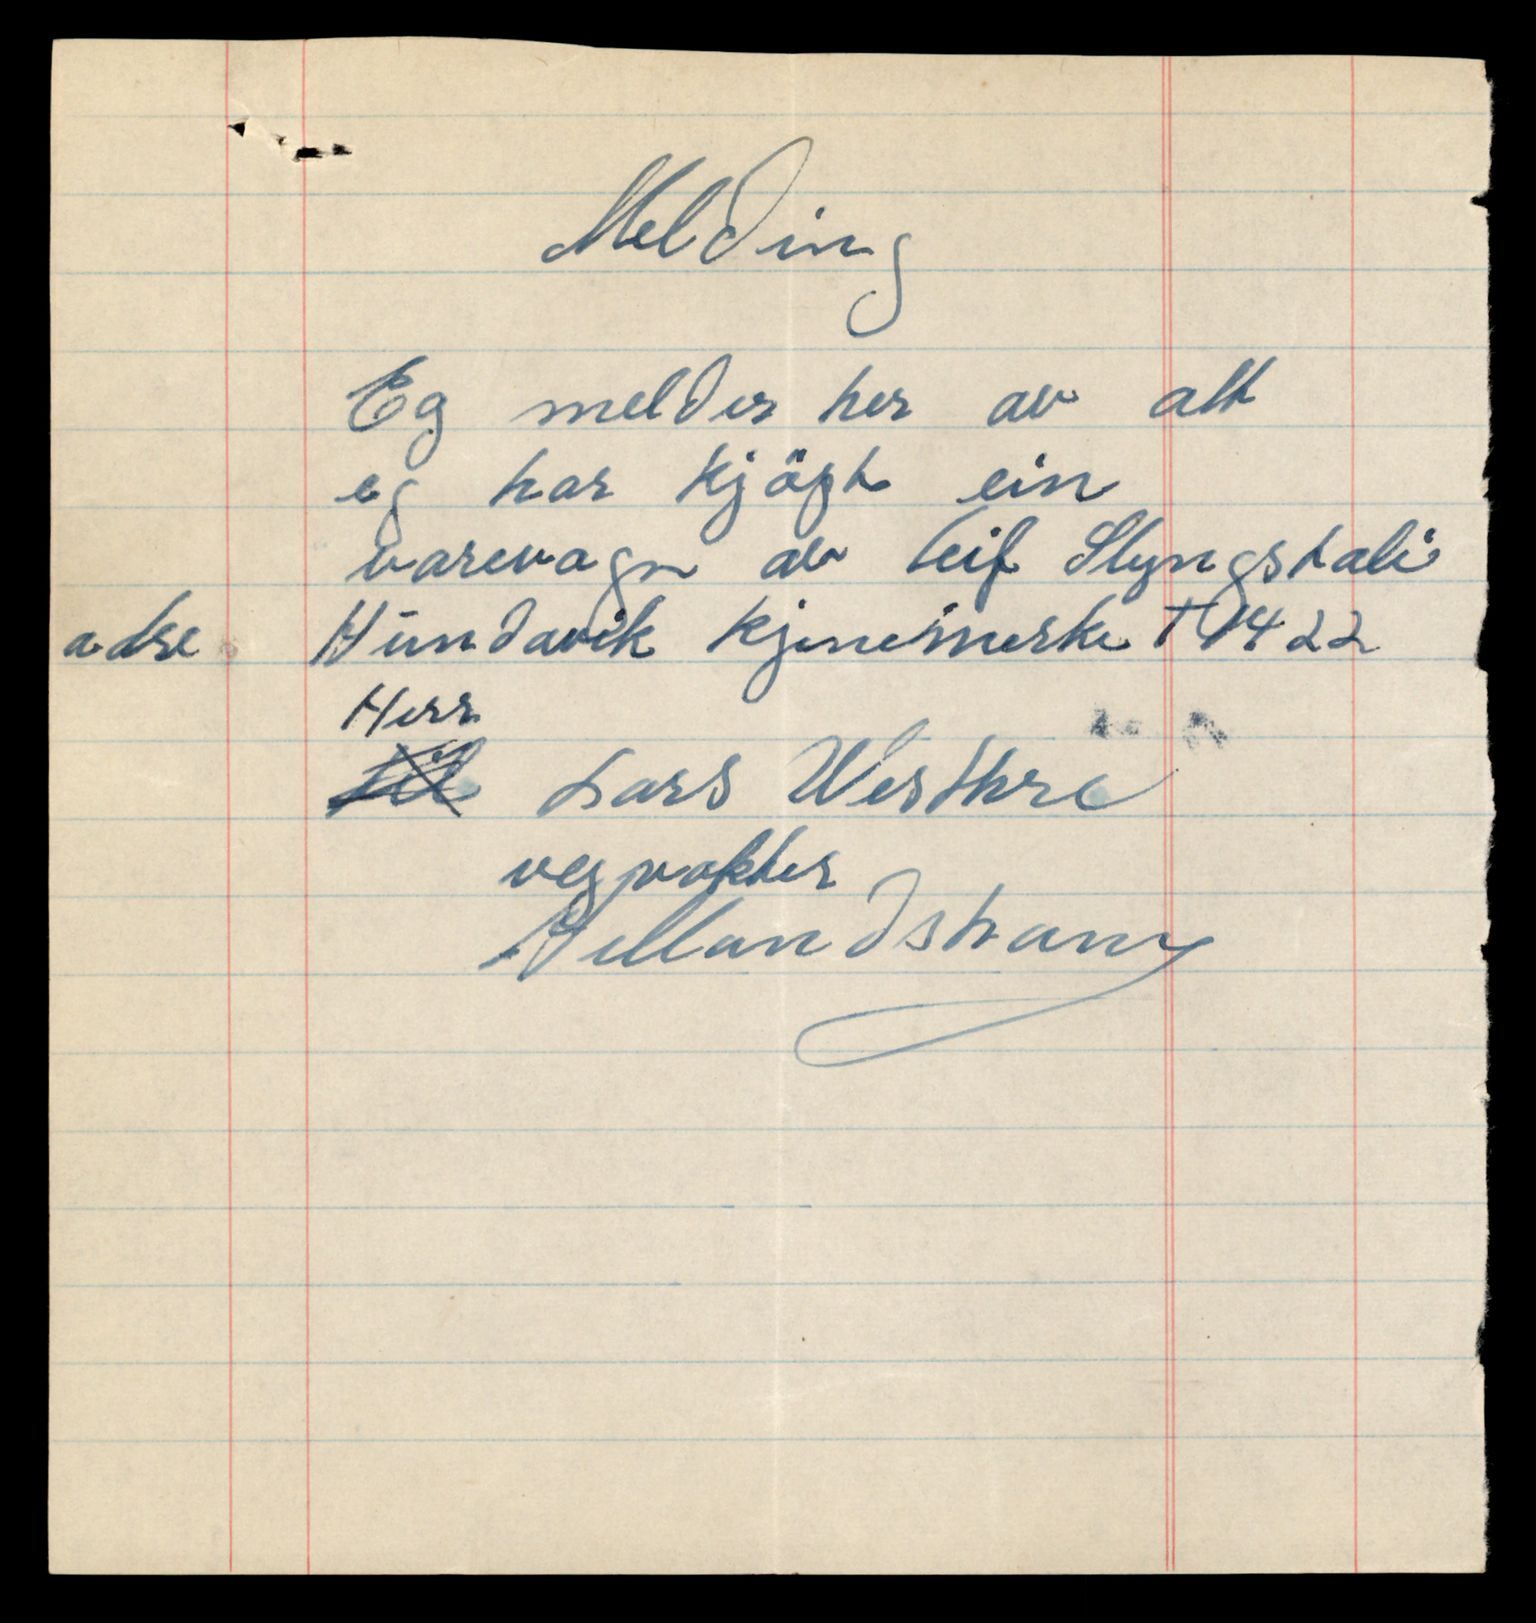 Melding
Eg melder her av att
eg har kjöpt ein
varevagn av Leif Slyngstali
adre Hŭndavik kjenemerke T 1422
Herr
til Lars Westhre
vegvakter
Hellandshamn